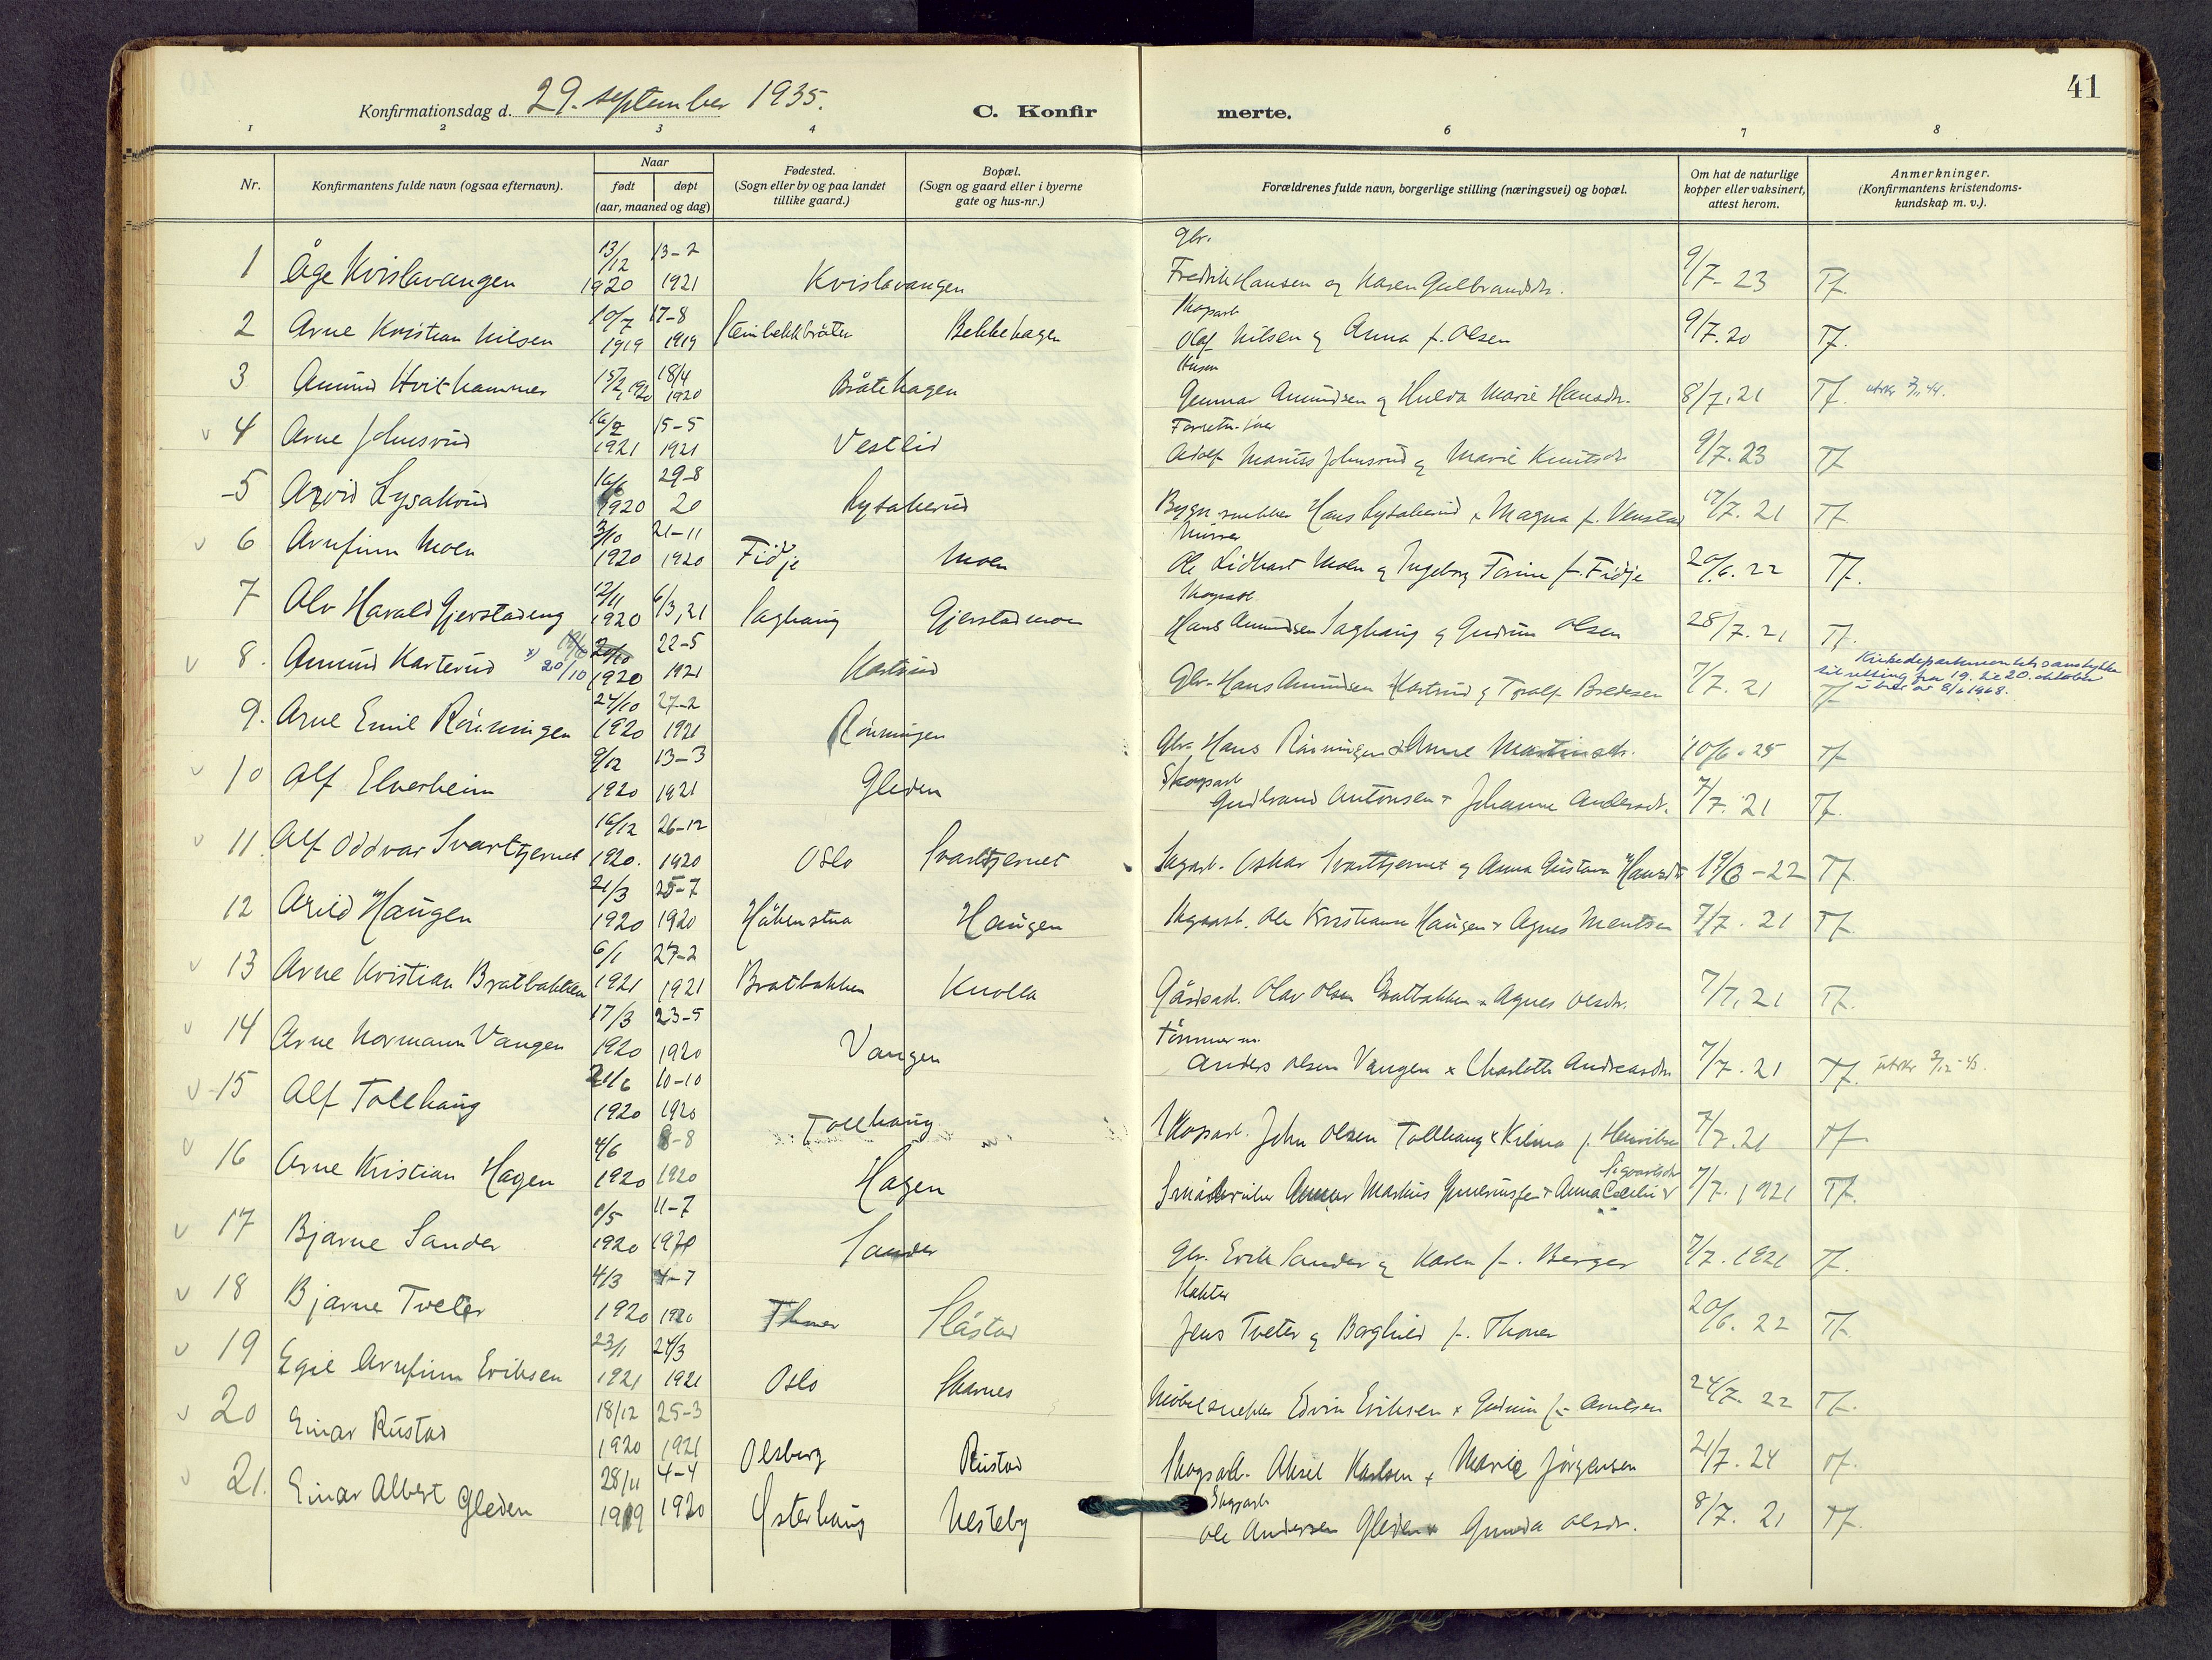 41
Konfirmationsdag d. 29. september 1935. C. Konfir merte.
1 2 3 4 6 7 8
Nr. Konfirmantens fulde navn (ogsaa efternavn). Naar født døpt (aar, maaned og dag) Fødested. (Sogn eller by og paa landet tillike gaard.) Bopæl. (Sogn og gaard eller i byerne gate og hus-nr.) Forældrenes fulde navn, borgerlige stilling (næringsvei) og bopæl. Om hat de naturlige kopper eller vaksinert, attest herom. Anmerkninger. (Konfirmantens kristendoms-kundskap m. v.).
1 Åge Kvislavangen 13/12 1920 13-2 1921 Kvislavangen Gbr. Fredrik Hansen og Karen Gulbrandsdr. 9/7-23 Tf.
2 Arne Kristian Nilsen 10/7 1919 17-8 1919 Stenbekkbråten Bekkehagen Skogsarb. Olaf Nilsen g Anna f. Olsen 9/7.20 Tf.
3 Amund Hvithammer 15/2 1920 18/4 1920 Bråtehagen Gunnar Amundsen g Hulda Marie Hansdr. 8/7.21 Tf.
4 Arne Johnsrud 1921 15-5 1921 Vestlid Adolf Marius Johnsrud g Marie Knutsdr. 9/7.23 Tf
5 Arvid Lysakerud 16/6 1920 29-8 20 Lysakerud Bygn.snekker Hans Lysakerud x Magna f. Venstad 17/7.21 Tf.
6 Arnfinn Moen 3/10 1920 21-11 1920 Fidje Moen Murer Ole Lidhart Moen g Ingeborg Torine f. Fidje 20/6.22 Tf.
7 Alv Harald Gjerstadeng 12/11 1920 6/3,21 Saghaug Gjerstadmoen Skogsarb. Hans Amundsen Saghaug g Gudrun Olsen 28/7.21 Tf.
8. Amund Kasterud x) 20/10 20/10 1920 22-5 1921 Kastrud Gbr. Hans Amundsen Kastrud g Torolf Bredesen 7/7.21 Tf Kirkedepartementets samtykke til retting fra 19. til 20. oktober i brev av 8/2 1968.
9. Arne Emil Rønningen 24/10 1920 27-2 1921 Rønningen Gbr. Hans Rønningen x Anne Martinsdr. 10/6.25 Tf
10 Alf Elverheim 9/12 1920 13-3 1921 Gleden Skogsarb Gudbrand Antonsen + Johanne Andersdr. 7/7.21 Tf.
11. Alf Oddvar Svarttjernet 16/12 1920. 26-12 1920 Oslo Svarttjernet Sagarb. Oskar Svarttjernet g Anna Gustava Hansdr 19/6-22 Tf.
12 Arild Haugen 21/3 1920 25-7 1920 Håkenstua Haugen Skogsarb. Ole Kristiansen Haugen + Agnes Mentsen 7/7.21 Tf.
13 Arne Kristian Bratbakken 6/1 1921 27-2 1921 Bratbakken Knolla Gårdsarb. Olav Olsen Bratbakken x Agnes Olsdr. 7/7.21 Tf.
14 Arne Normann Vangen 17/3 1920 23-5 1920 Vangen Tømmerm. Anders Olsen Vangen x Charlotte Andreasdr. 7/7.21 Tf.
15 Alf Tollhaug 21/6 1920 10-10 1920 Tollhaug Skogsarb. John Olsen Tollhaug x Kilma f. Henriksen 7/7.21 Tf
16 Arne Kristian Hagen 4/6 1920 8-8 1920 Hagen Småbruker Markus Anna Cecilie Sigvartsdr 7/7.1921 Tf.
17 Bjarne Sander 9/5 1920 11-7 1920 Sander Gbr. Erik Sander g Karen f. Berger 7/7.1921 Tf.
18 Bjarne Tveter 4/3 1920 4-7 1920 Thoner Slåstad Jens Tveter g Borghild f. Thoner 20/6.22 Tf.
19 Egil Arnfinn Eriksen 23/1 1921 24/3 1921 Oslo Skarnes Møbelsnekker Edvin Eriksen x Gudrun f. Arntsen 24/7.22 Tf.
20 Einar Rustad 18/12 1920 25-3 1921 Olsberg Rustad Skogsarb. Aksel Karlsen x Marie Jørgensen 21/7.24 Tf.
21. Einar Albert Gleden 28/11 1919 4-4 1920 Østerhaug Nesteby Skogsarb Ole Andersen Gleden x Gunda Olsdr. 8/7.21 Tf.